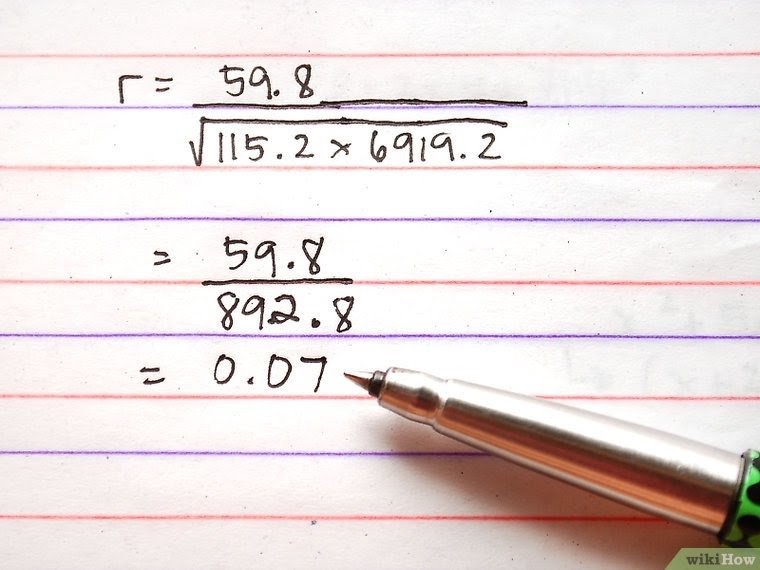 r = 59.8
√115.2 x 6919.2
= 59.8
892.8
= 0.07
wikiHow